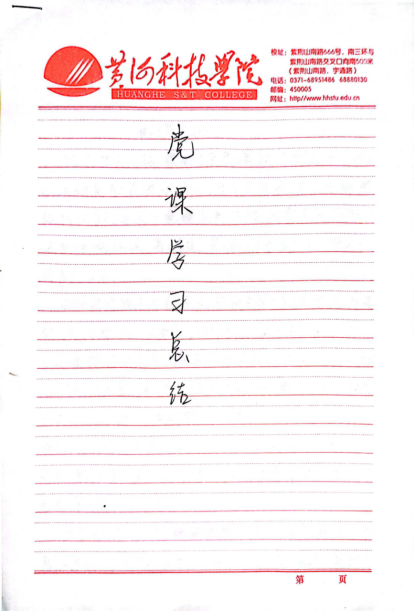 黄河科技学院
HUANGHE S&T COLLEGE
校址：紫荆山南路666号，南三环与
紫荆山南路交叉口向南500米
（紫荆山南路、宇通路）
电话：0371-68951486 68880130
邮编：450005
网址：http//www.hhstu.edu.cn
党
课
学
习
总
结
第 页